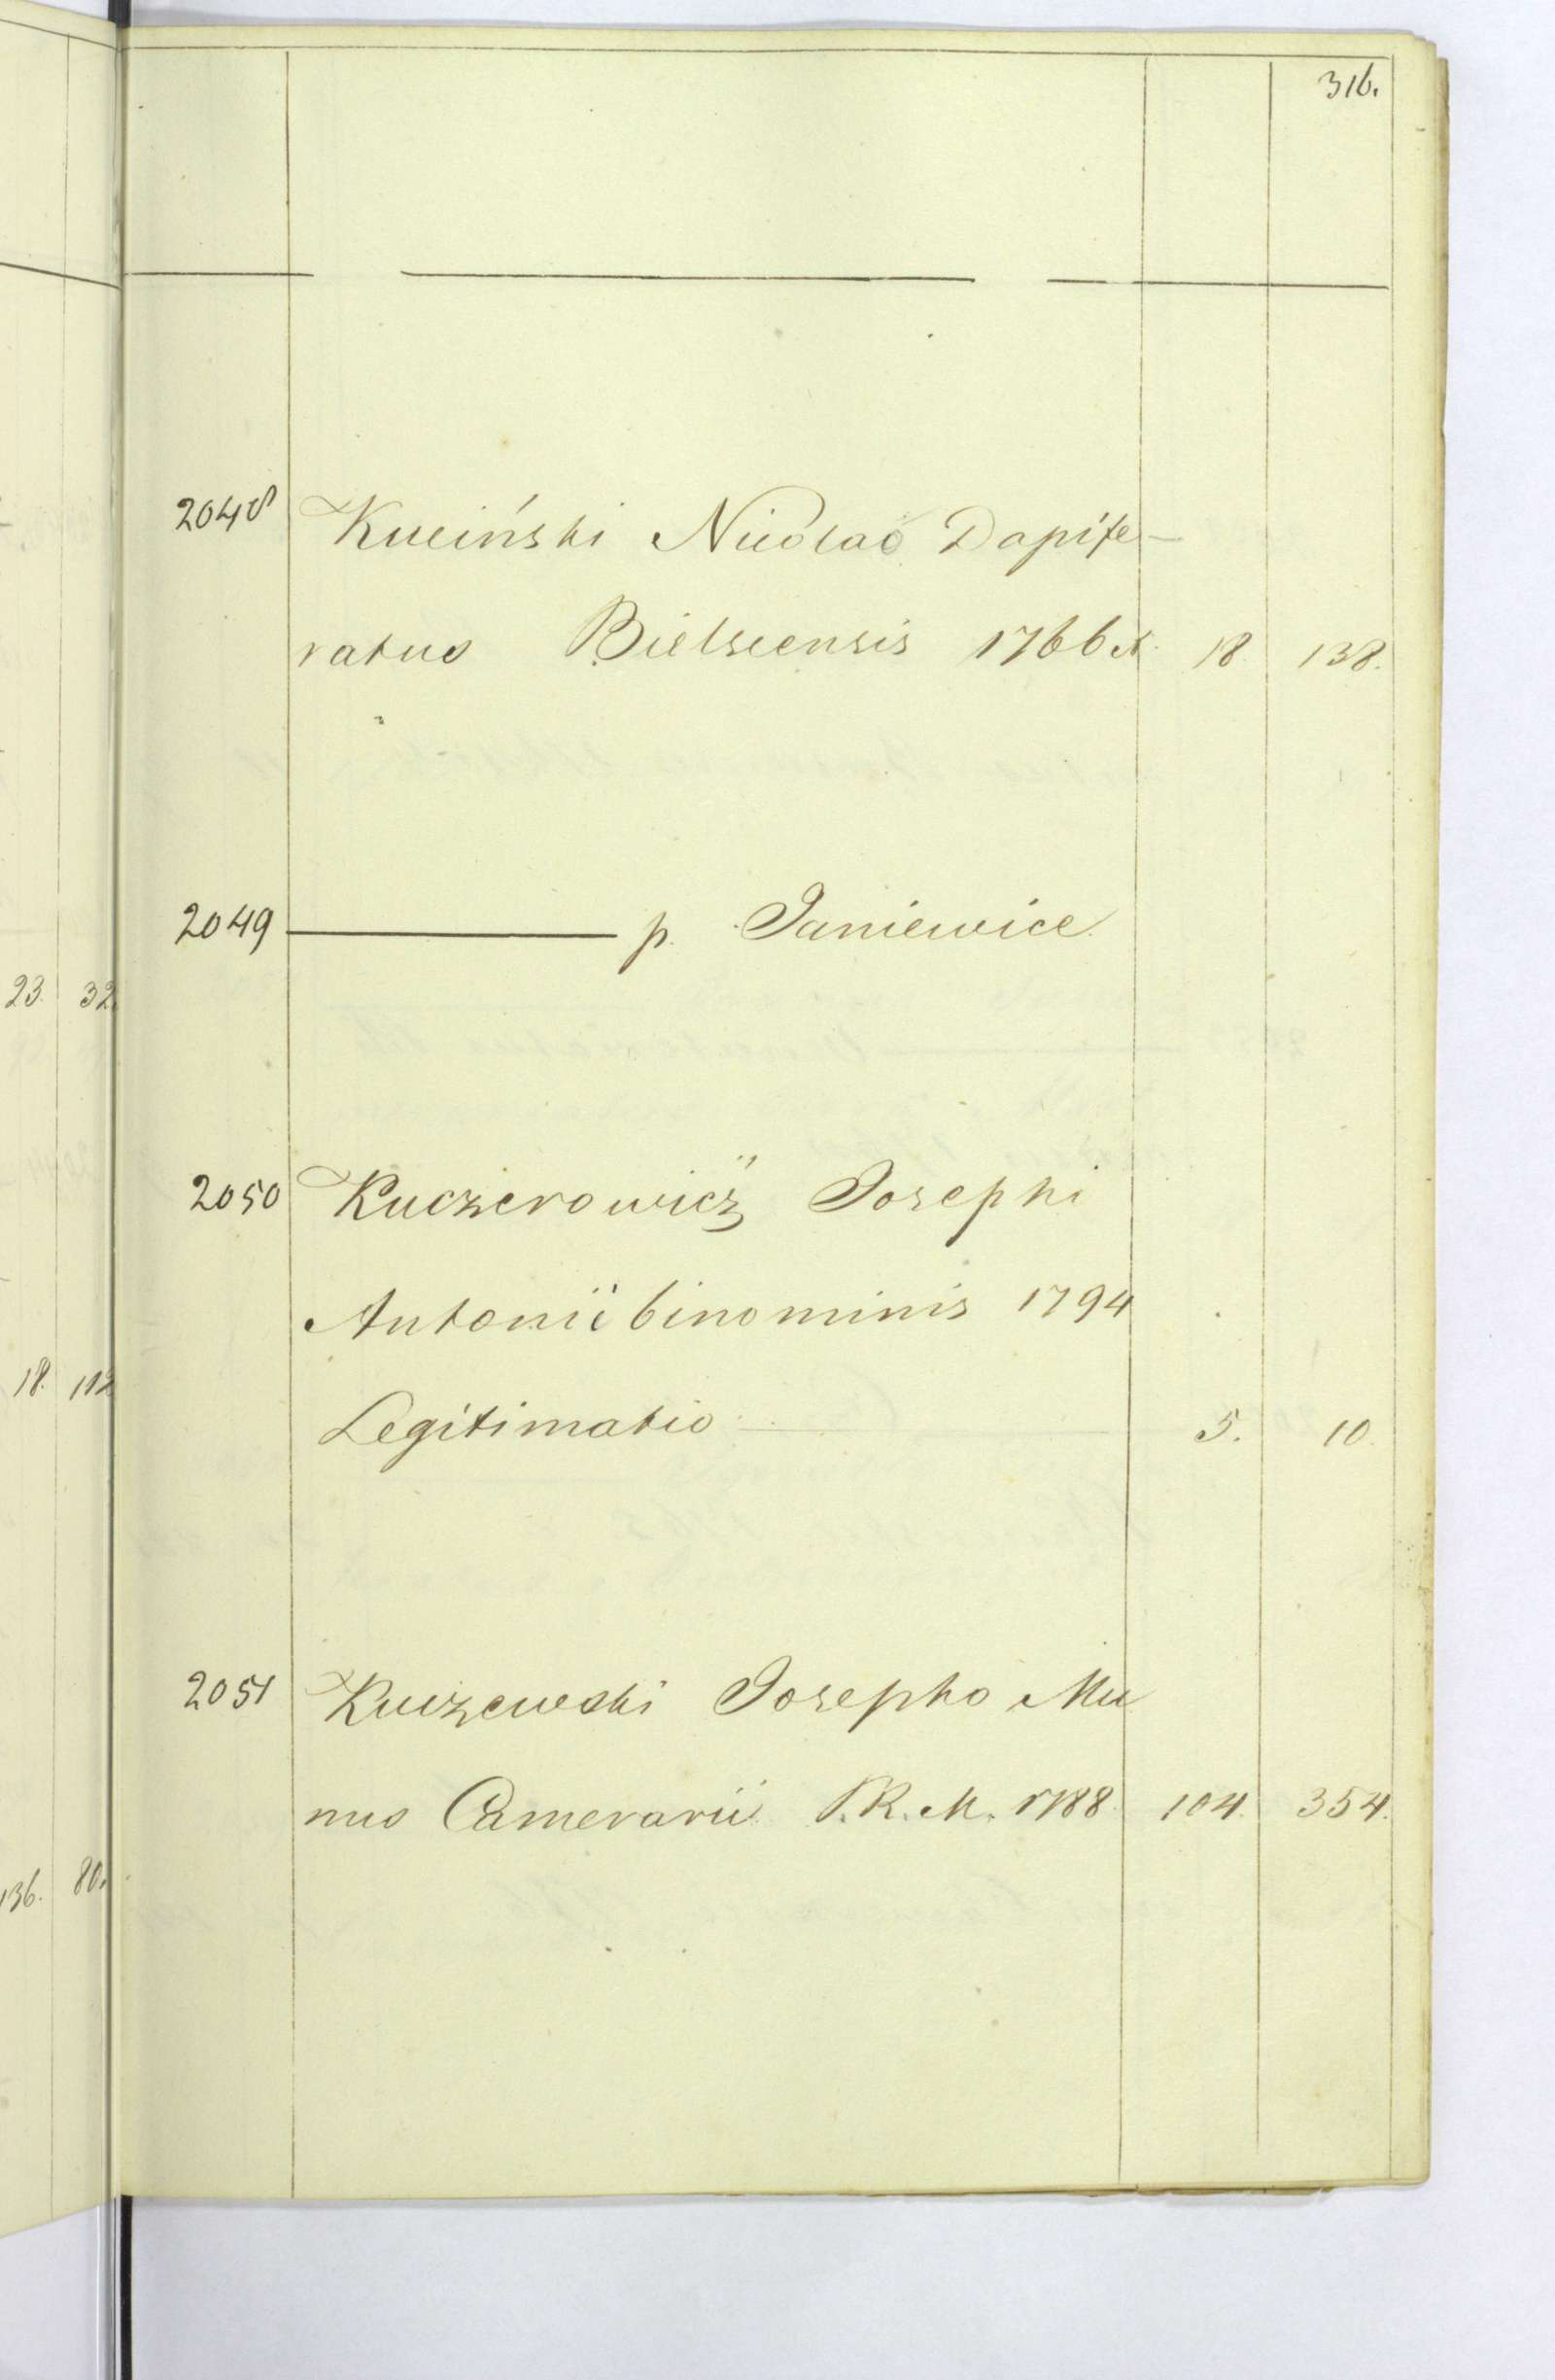 316.
2048 Kuciński Nicolao Dapife-
ratus Bielscensis 1766 18 138.
2049 ——— p. Janiewice
2050 Kuczerowicz Josephi
Antonii binominis 1794
Legitimatio 5. 10.
2051 Kuczewski Josepho Mu
nus Camerarii S.R.M. 1788 104. 354.
23. 32.
18. 112
136. 80.